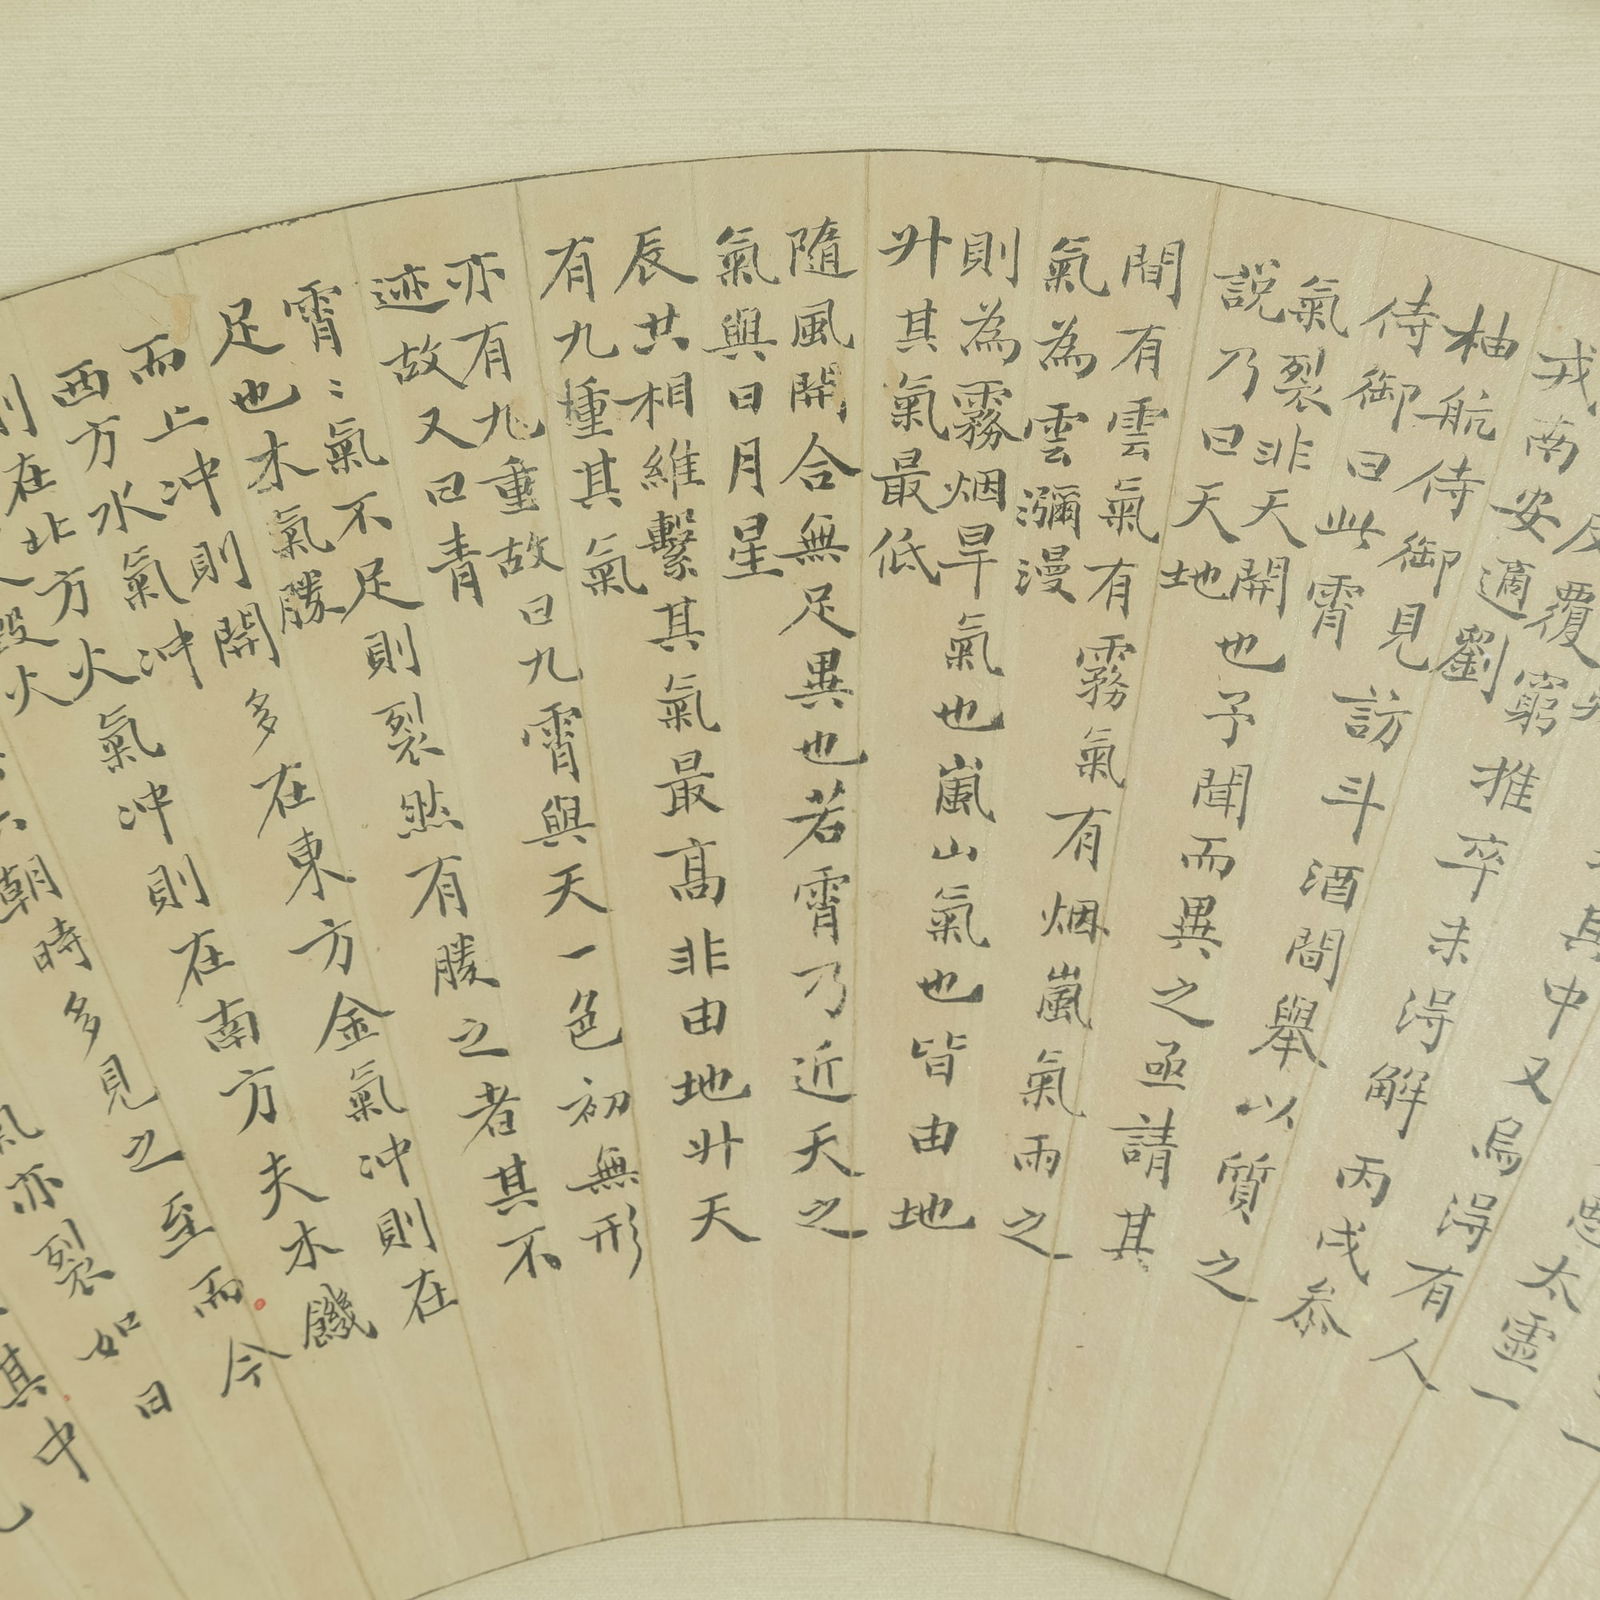 太虛一
其中又烏得有人
反覆窮推卒未得解丙戌叅
戎南安適劉
柚航侍御見訪斗酒間舉以質之
侍御曰此霄
氣裂非天開也予聞而異之亟請其
說乃曰天地
間有雲氣有霧氣有烟嵐氣雨之
氣為雲瀰漫
則為霧烟旱氣也嵐山氣也皆由地
升其氣最低
隨風開合無足異也若霄乃近天之
氣與日月星
辰共相維繫其氣最高非由地升天
有九重其氣
亦有九重故曰九霄與天一色初無形
迹故又曰青
霄〻氣不足則裂然有勝之者其不
足也木氣勝
而止冲則開多在東方金氣冲則在
西方水氣冲
則在北方火氣冲則在南方夫木饑
毀火
朝時多見之至而今
亦裂如日
其中